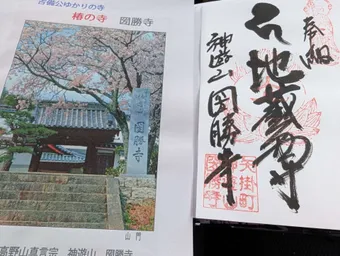 吉備公ゆかりの寺
椿の寺 圀勝寺
圀勝寺
山門
高野山真言宗 神遊山 圀勝寺
奉納
地蔵尊
神遊山圀勝寺
矢掛町
圀勝寺